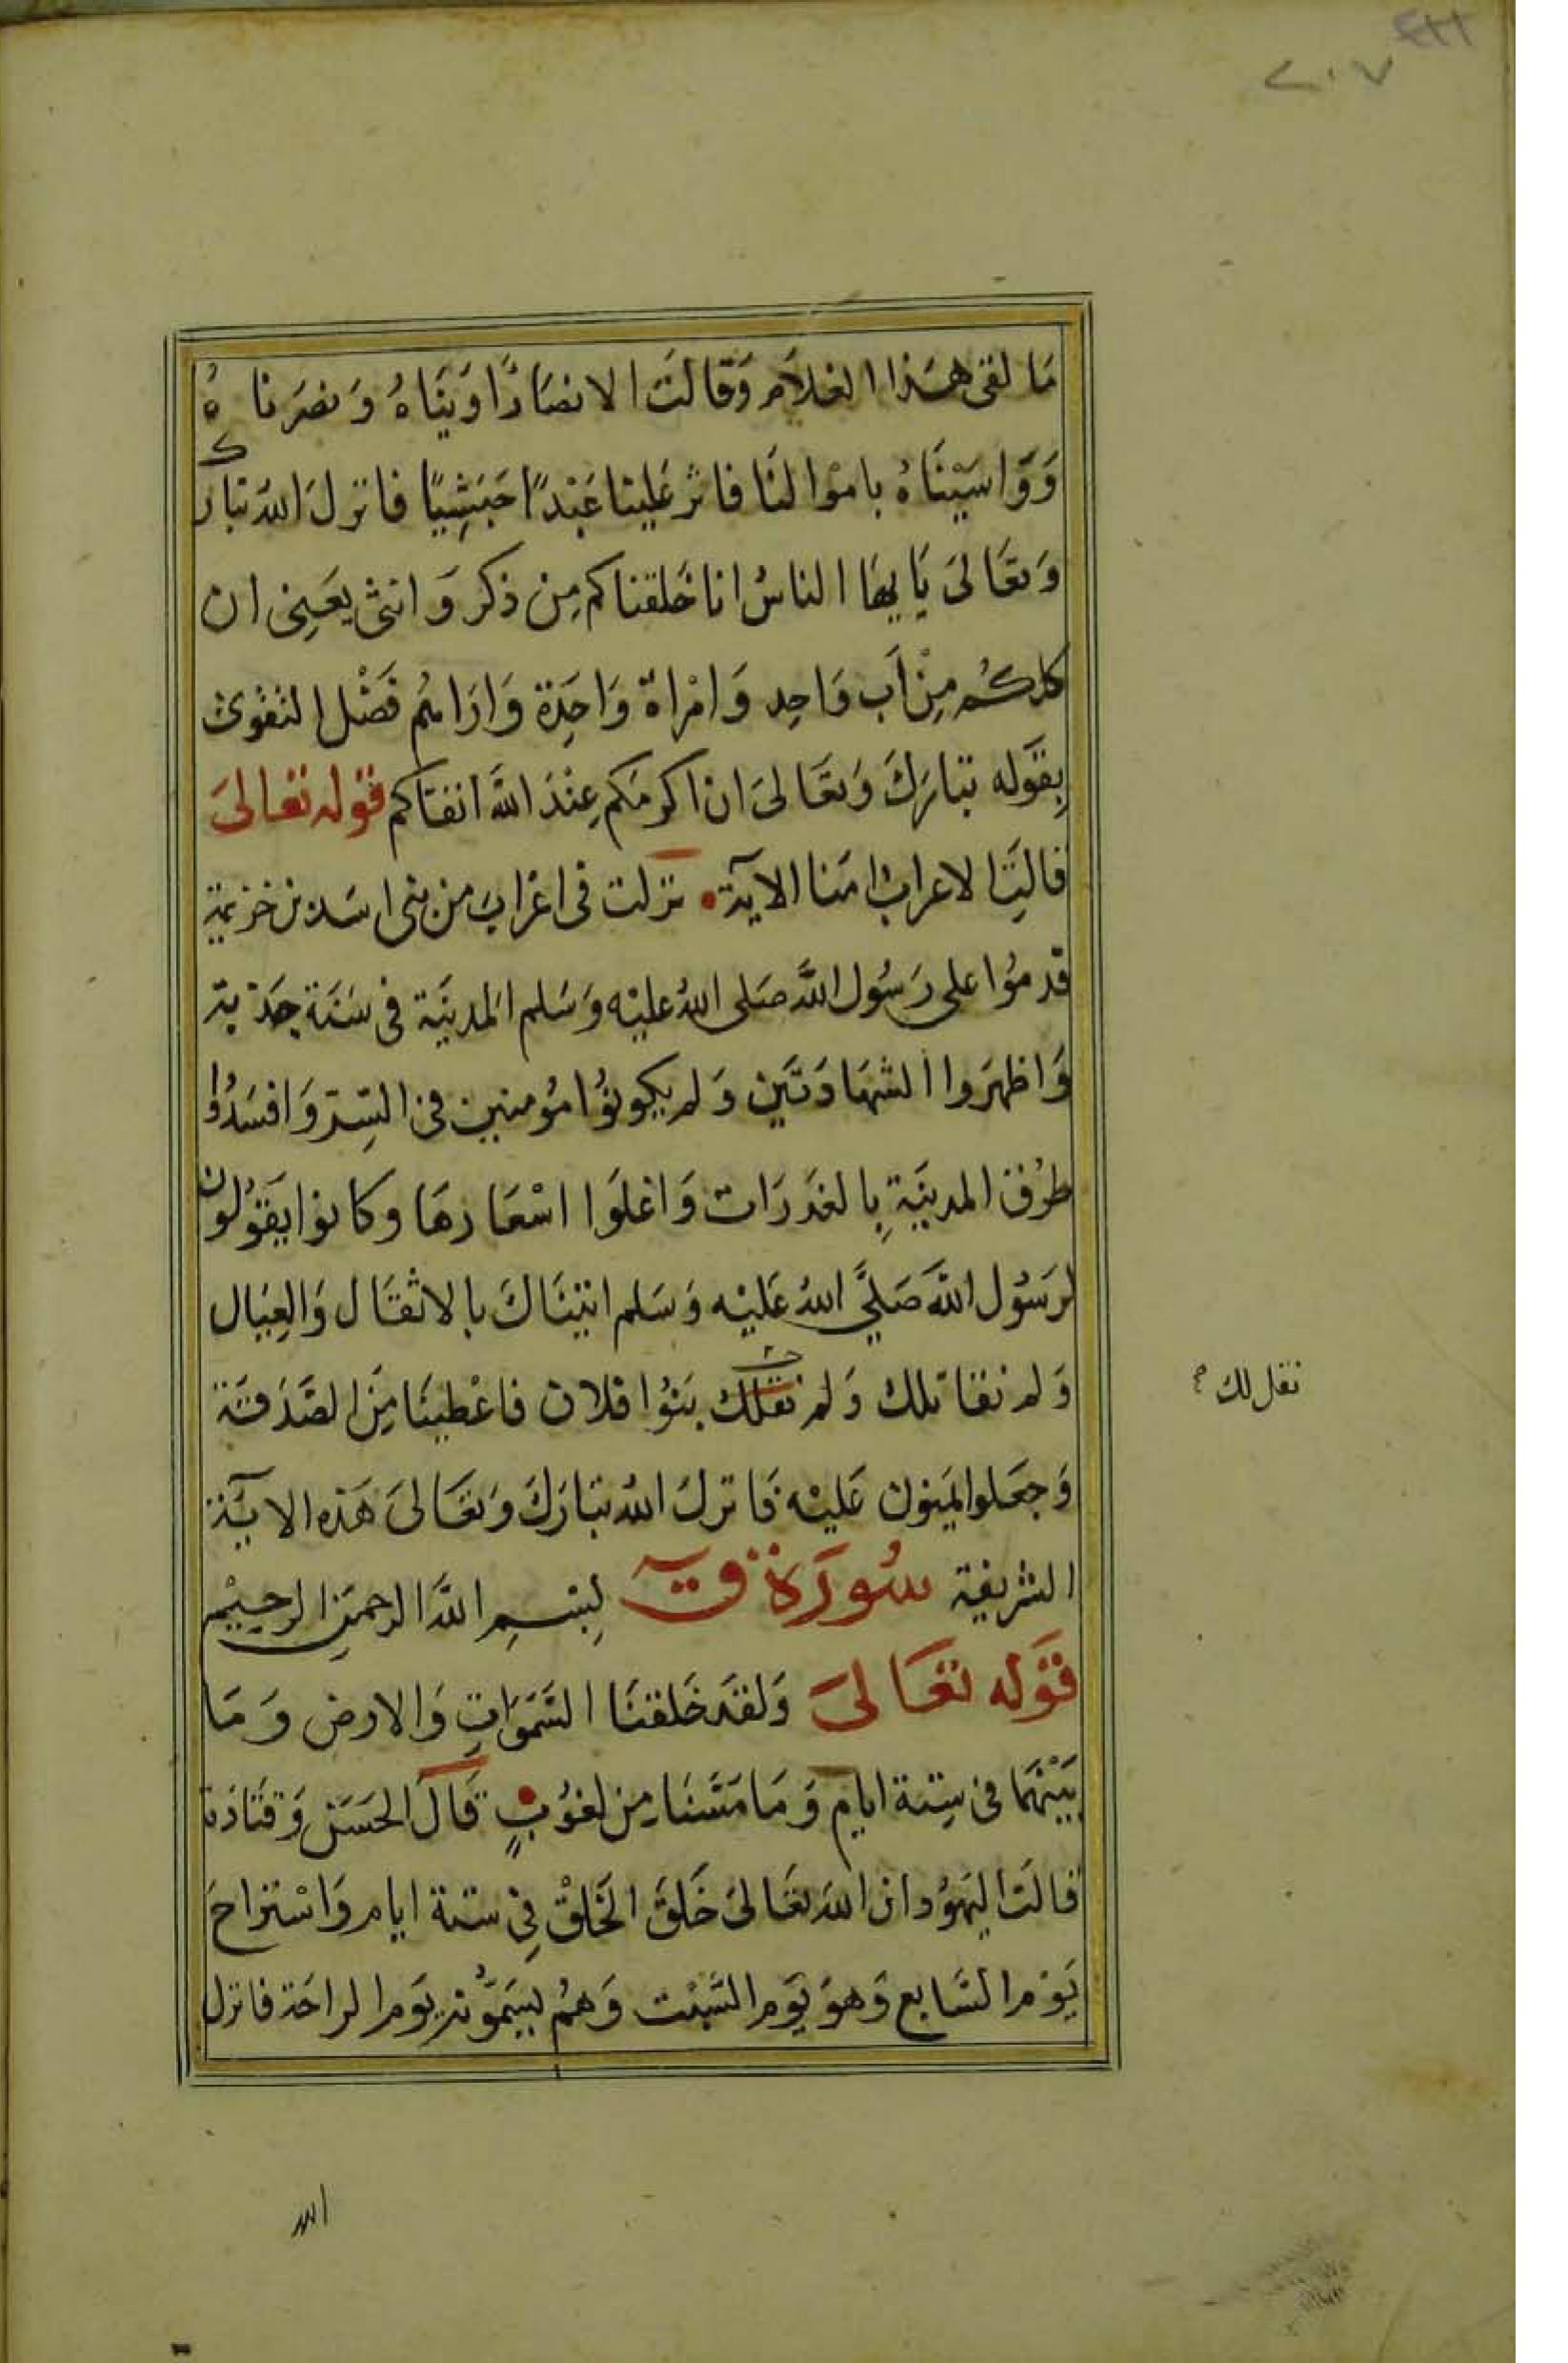 ٢٠٧
مَا لقى هَذا الغلاَم وَقالتَ الانصَارُ اوَينَاهُ وَنصَرَناهُ
وَوَاسَيْنَاهُ باموْالنَا فاثر عَلينا عَبْدًا حَبَشِيًا فانزلَ اللهُ تبارك
وَتعَالىَ يَايهَا الناسُ انا خَلقناكم مِن ذكر وَانثى يَعنِى ان
كلكُم مِنْ اَب وَاحِد وَامْراة وَاحِدَة وَارَاهُم فَضْل التقوى
بِقَوله تبَارَكَ وَتعَالىَ ان اكرمَكم عِنْدَ اللهَ اتقاكم قوله تعَالىَ
قالتِ الاعرابُ امَنا الآية نزلت فى اعْرَابَ من بنى اسَد بن خزيمة
قدمُوا على رَسُول اللهَ صَلى اللهُ عليْه وَسَلم المدينَة فى سَنَة جَدْبة
وَاظهَروا الشهَادَتَين وَلم يكونوُا مؤمنين فى السِر وَافسَدُوا
طرُق المدينَةِ بِالغدَرَات وَاغلَوا اسْعَارهَا وكانوا يَقوُلون
لرَسُول اللهَ صَلىَّ اللهُ عَليْه وَسَلم اتينَاكَ بالاثقَال وَالعِيَال
وَلم نقاتلك وَلم نقلك بَنوُا فلان فاعْطينَا مِنَ الصَدَقَة
نقل لك
وَجعَلوا يَمنون عَليْه فَانزلَ اللهُ تبَارَكَ وَتعَالىَ هَذه الايَة
الشريفة سُورَة قٓ بِسْمِ اللهَ الرحمَنِ الرحِيْم
قَوله تعَالىَ وَلقدَ خَلقنَا السَّمَوَاتِ وَالارض وَمَا
بَيْنهُمَا فى سِتة ايام وَمَا مَسَّنَا مِن لغوُبٍ قَالَ الحَسَنْ وَقتَادَة
قالتَ اليَهوُد ان اللهَ تعَالىَ خَلقَ الخَلقْ فِى ستة ايام وَاسْتراحَ
يَوْم السَّابع وَهوَ يَوَم السَّبْت وَهُم يسَمَوُّنه يَوَم الراحَة فانزل
الله